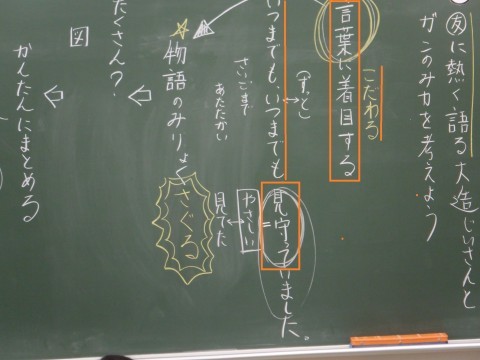 友に熱く語る大造じいさんと
ガンのみ力を考えよう
こだわる
言葉に着目する
(ずっと)
いつまでも、いつまでも見守っていました。
さいごまで
あたたかい
やさしい
見てた
☆物語のみりょくさぐる
たくさん?
図
かんたんにまとめる